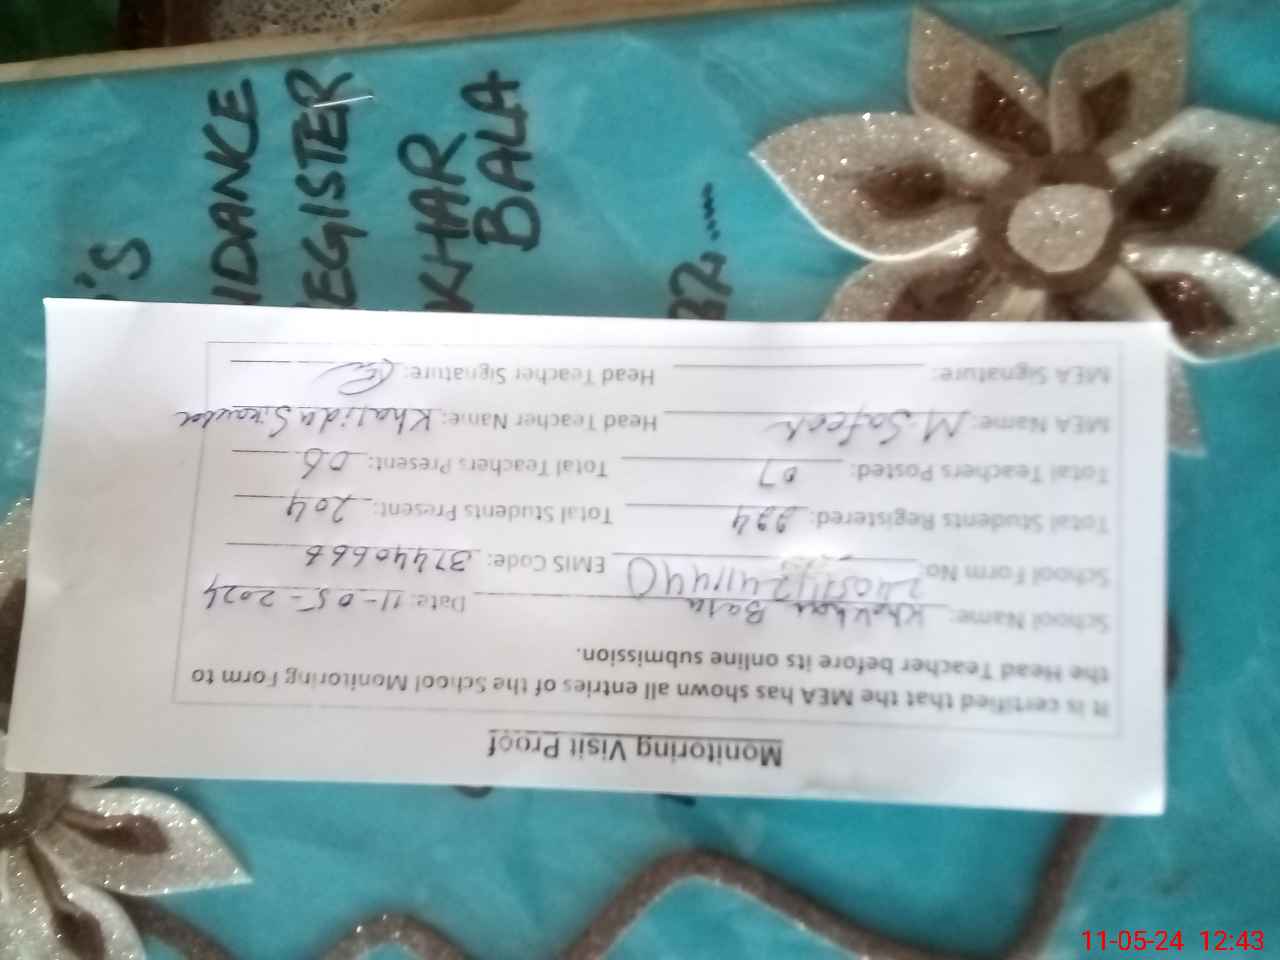 'S
NDANCE
EGISTER
KHAR
BALA
Monitoring Visit Proof
It is certified that the MEA has shown all entries of the School Monitoring Form to
the Head Teacher before its online submission.
School Name: Khokhar Bala Date: 11-05-2024
School Form No: EMIS Code: 37440666
Total Students Registered: 224 Total Students Present: 204
Total Teachers Posted: 07 Total Teachers Present: 06
MEA Name: M. Safeer Head Teacher Name: Khalida
MEA Signature: Head Teacher Signature:
11-05-24 12:43